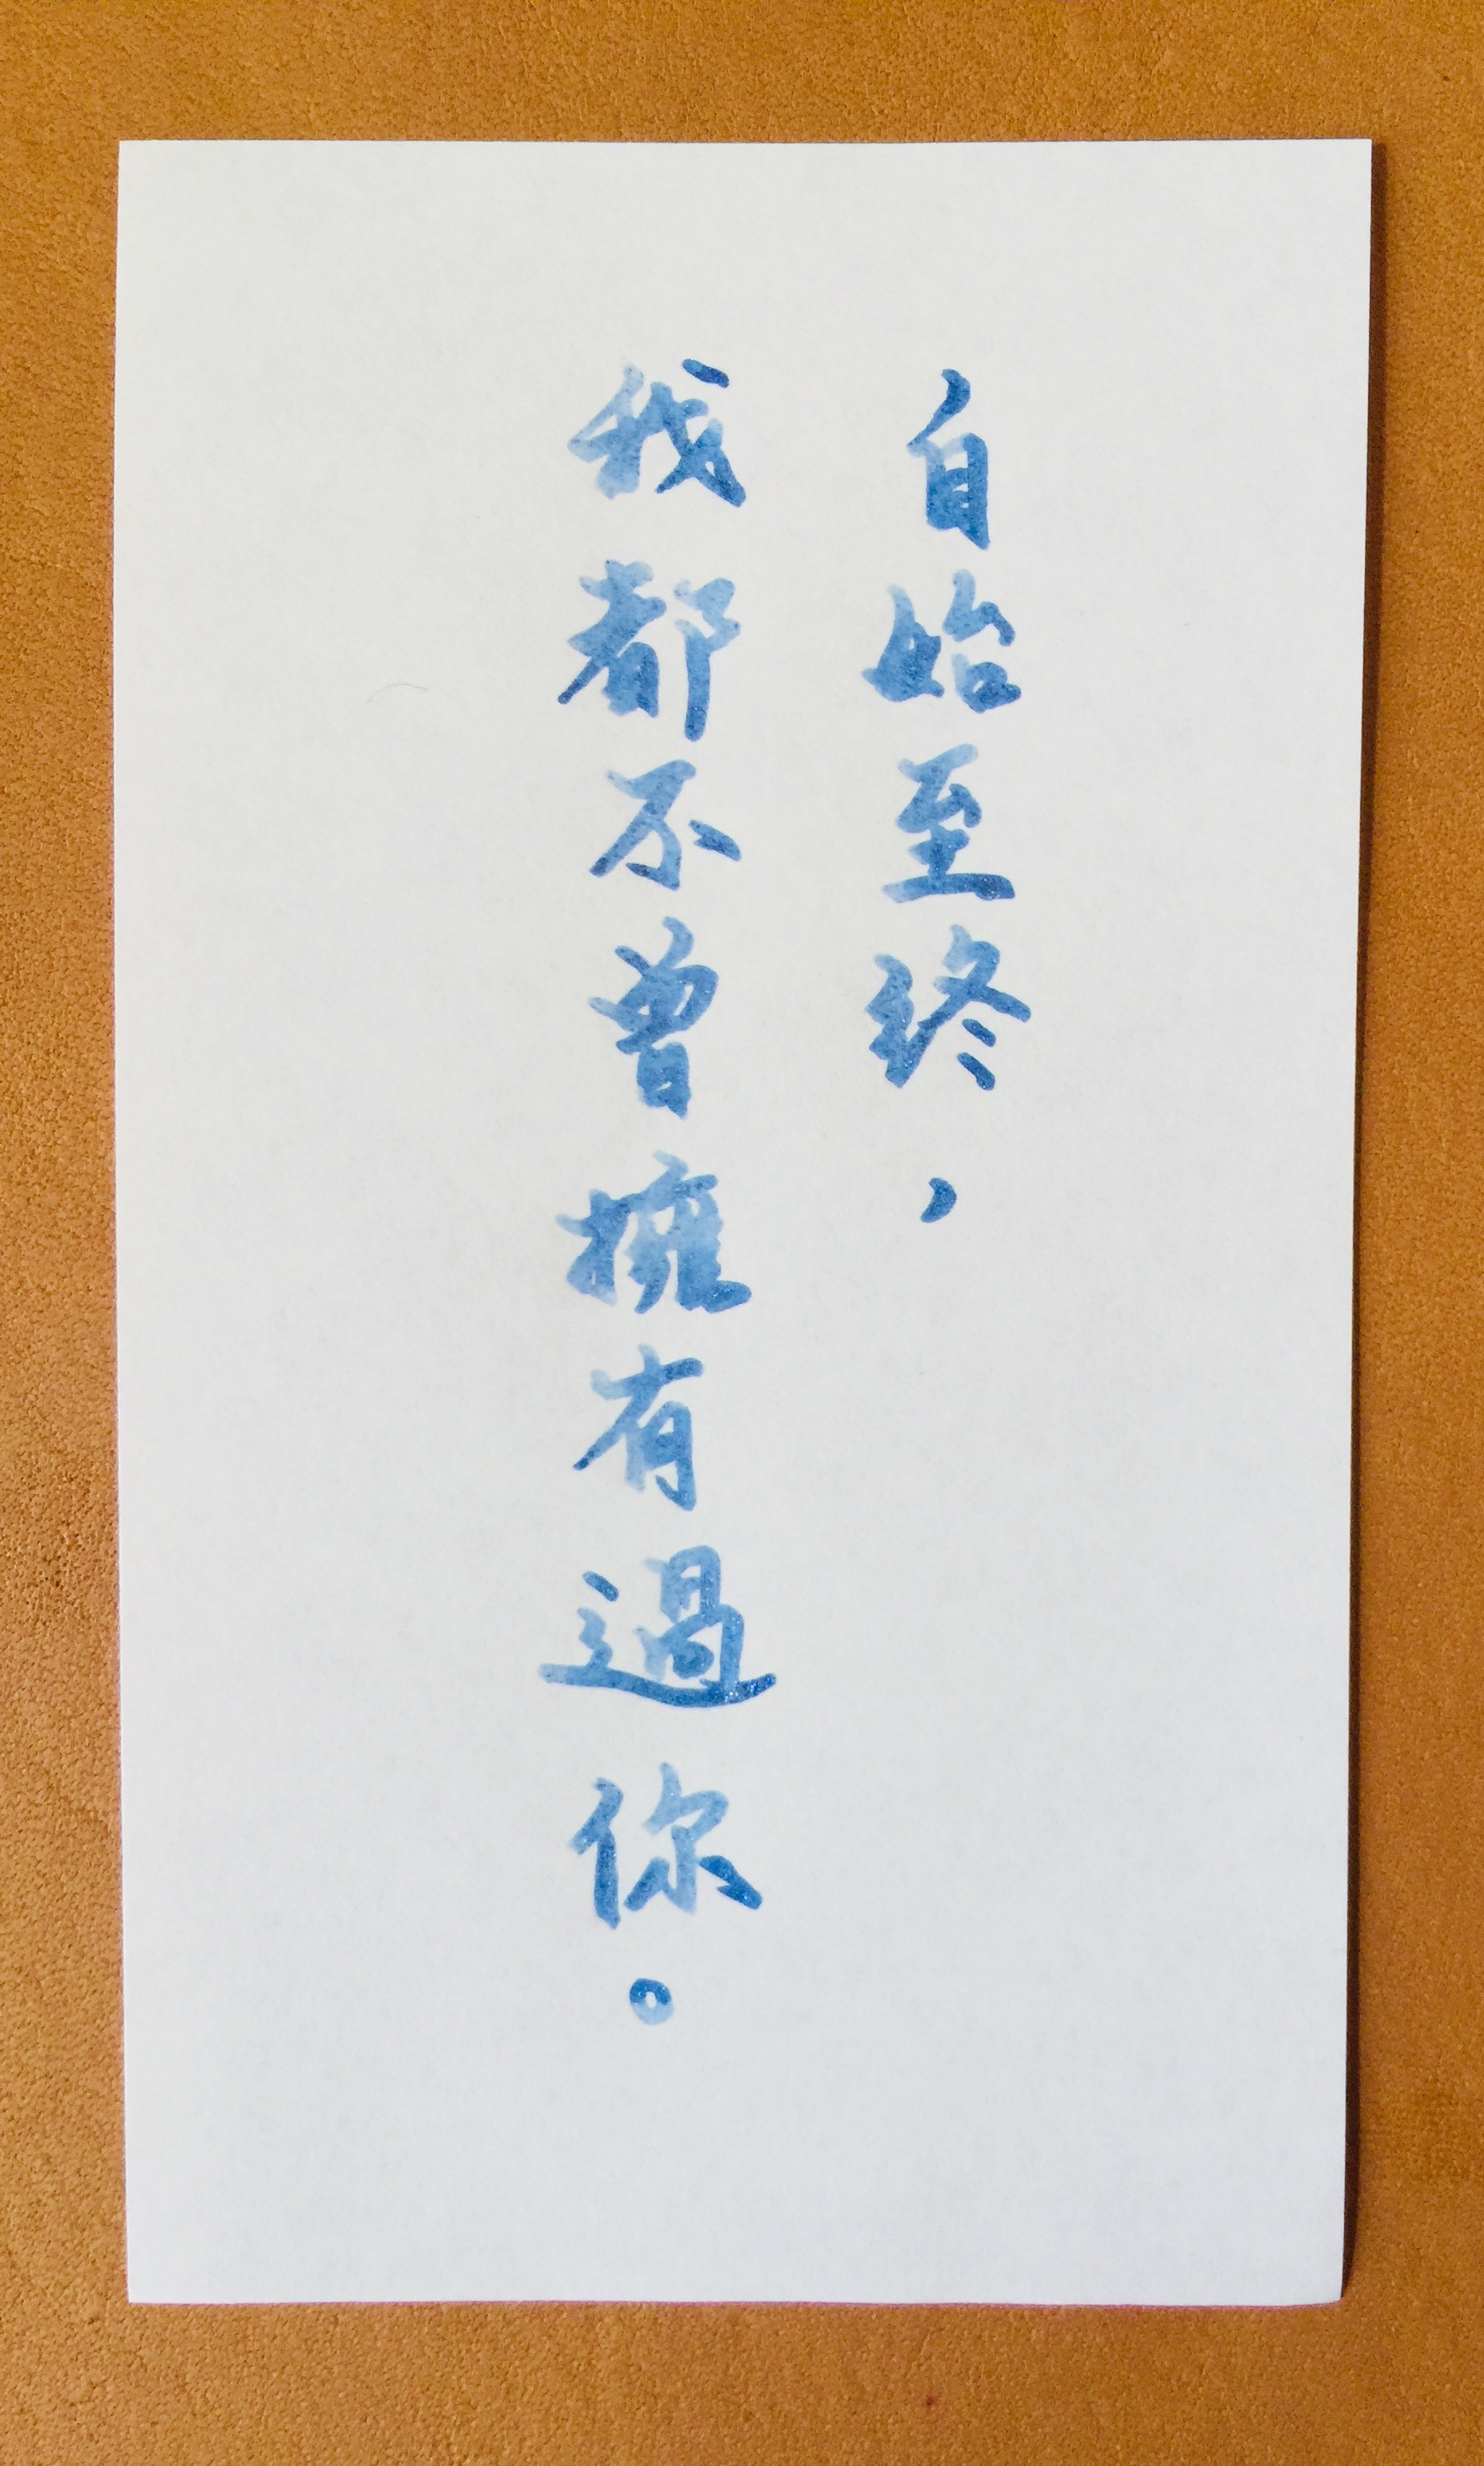 自始至終，
我都不曾擁有過你。